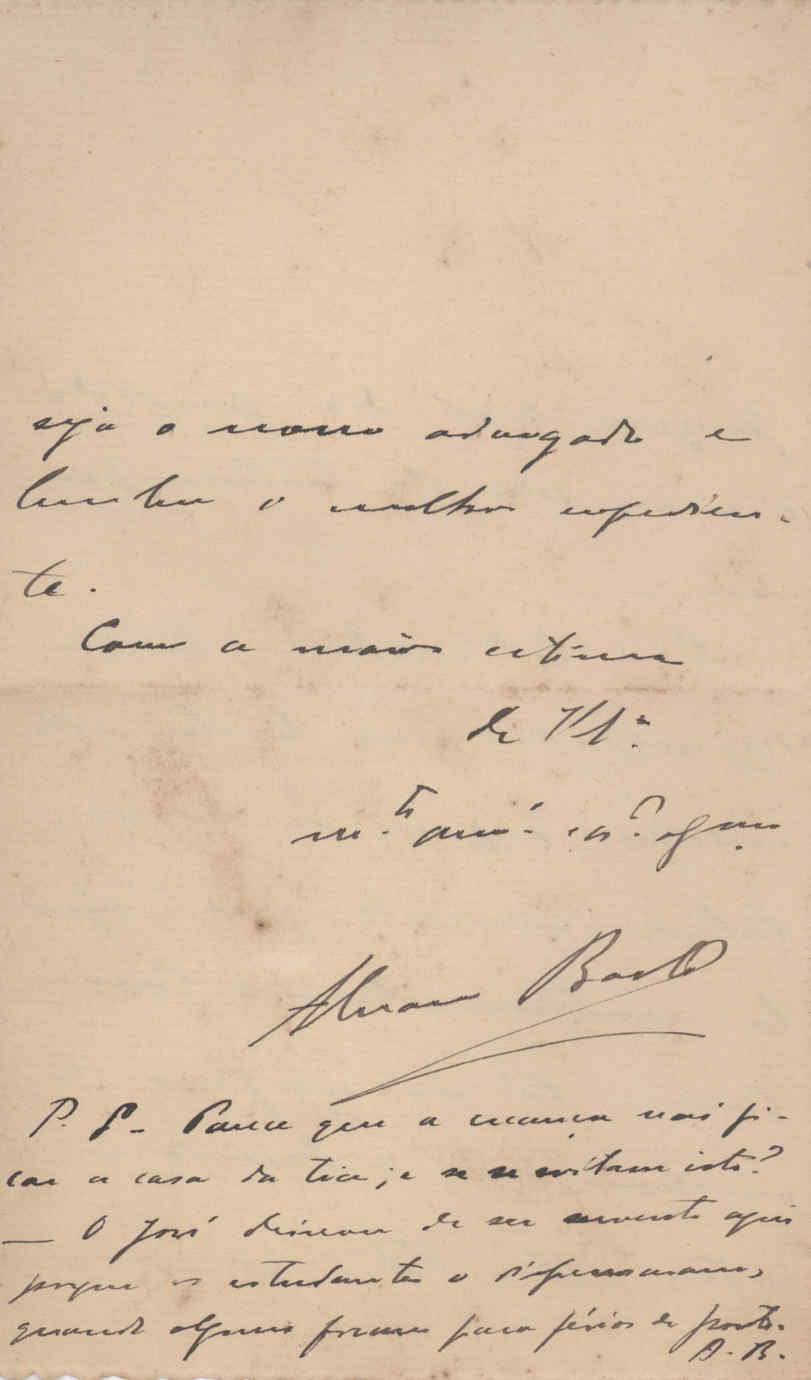 seja o nosso advogado e
lembre o melhor expedien-
te.
Com a maior estima
de V. S.ª
m.to am.º e
Alvaro
P. S. - Parece que a creança vai fi-
car a casa da tia; e se evitam isto?
— O José deixou de ser servente aqui
porque os estudantes o dispensaram,
quando alguns foram para férias de ponto.
A. B.